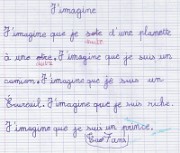 J'imagine
J'imagine que je sote d'une planette
saute
à une otre. J'imagine que je suis un
autre
J'imagine que je suis un
Écureuil. J'imagine que je suis riche.
J'imagine que je suis un prince.
7 ans